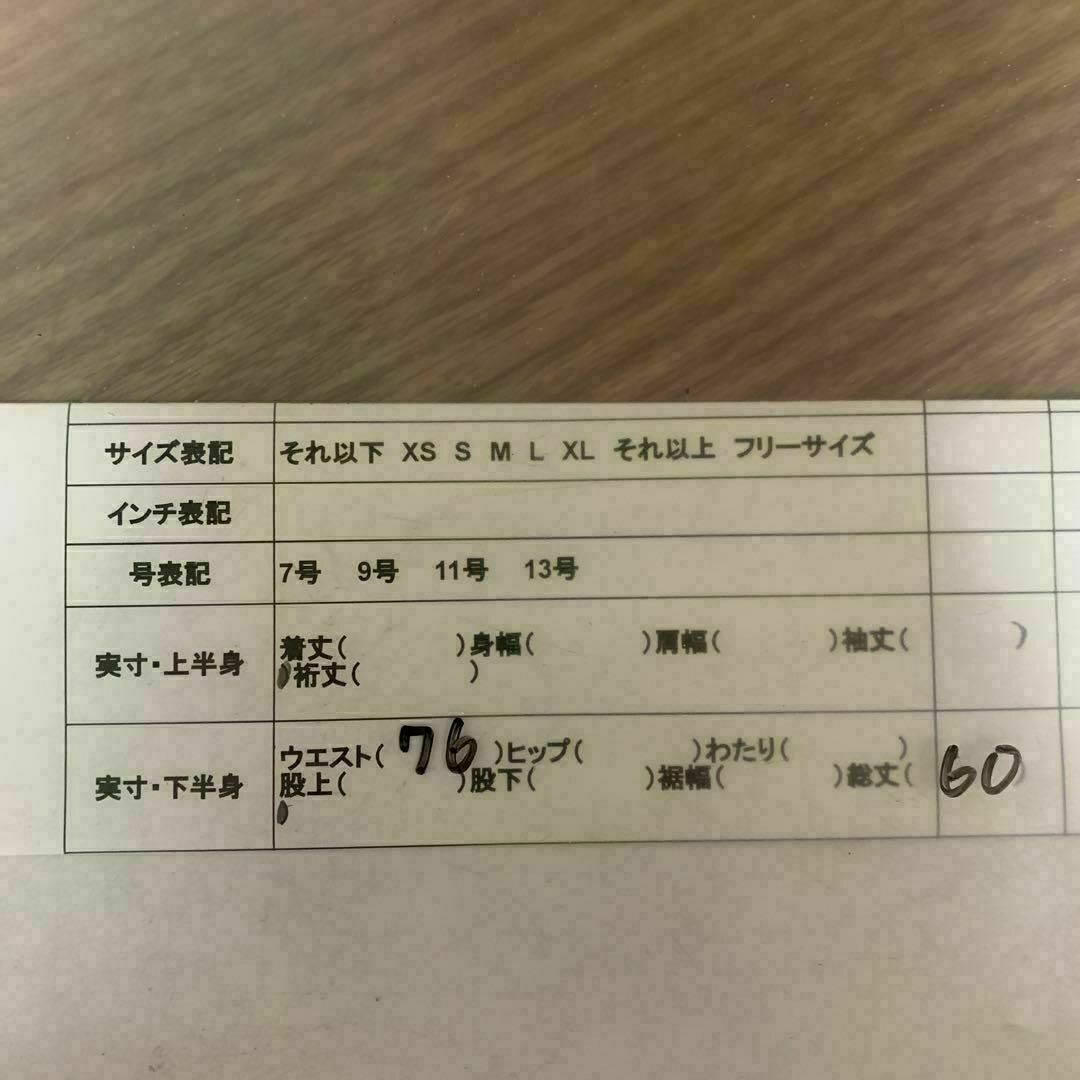 サイズ表記 それ以下 XS S M L XL それ以上 フリーサイズ
インチ表記
号表記 7号 9号 11号 13号
実寸・上半身 着丈( )身幅( )肩幅( )袖丈( )
)裄丈( )
実寸・下半身 ウエスト( 76 )ヒップ( )わたり( )
股上( )股下( )裾幅( )総丈( 60 )
)